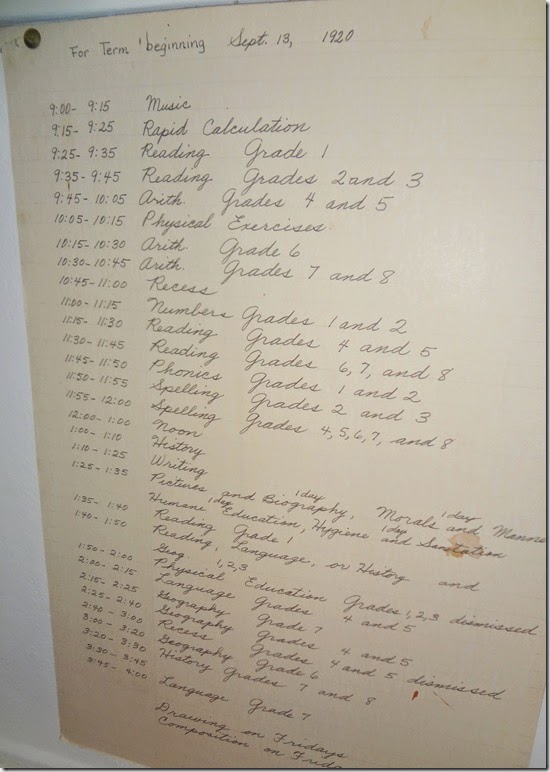 For Term beginning Sept. 13, 1920
9:00- 9:15 Music
9:15- 9:25 Rapid Calculation
9:25- 9:35 Reading Grade 1
9:35- 9:45 Reading Grades 2 and 3
9:45- 10:05 Arith. Grades 4 and 5
10:05- 10:15 Physical Exercises
10:15- 10:30 Arith. Grade 6
10:30- 10:45 Arith. Grades 7 and 8
10:45- 11:00 Recess
11:00- 11:15 Numbers Grades 1 and 2
11:15- 11:30 Reading Grades 4 and 5
11:30- 11:45 Reading Grades 6, 7, and 8
11:45- 11:50 Phonics Grades 1 and 2
11:50- 11:55 Spelling Grades 2 and 3
11:55- 12:00 Spelling Grades 4, 5, 6, 7, and 8
12:00- 1:00 Noon
1:00- 1:10 History
1:10- 1:25 Writing
1 day 1 day
1:25- 1:35 Pictures and Biography, Morals and Manne
1 day 1 day
Humane Education, Hygiene and Sanitation
1:35- 1:40 Reading Grade 1
1:40- 1:50 Reading, Language, or History and
Geog. 1, 2, 3
1:50- 2:00 Physical Education Grades 1, 2, 3 dismissed
2:00- 2:15 Language Grades 4 and 5
2:15- 2:25 Geography Grade 7
2:25- 2:40 Geography Grades 4 and 5
2:40- 3:00 Recess Grades 4 and 5 dismissed
3:00- 3:20 Geography Grade 6
3:20- 3:30 History Grades 7 and 8
3:30- 3:45
3:45- 4:00 Language Grade 7
Drawing on Fridays
Composition on